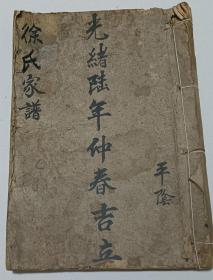 光緒陆年仲春吉立
徐氏家譜
平陰